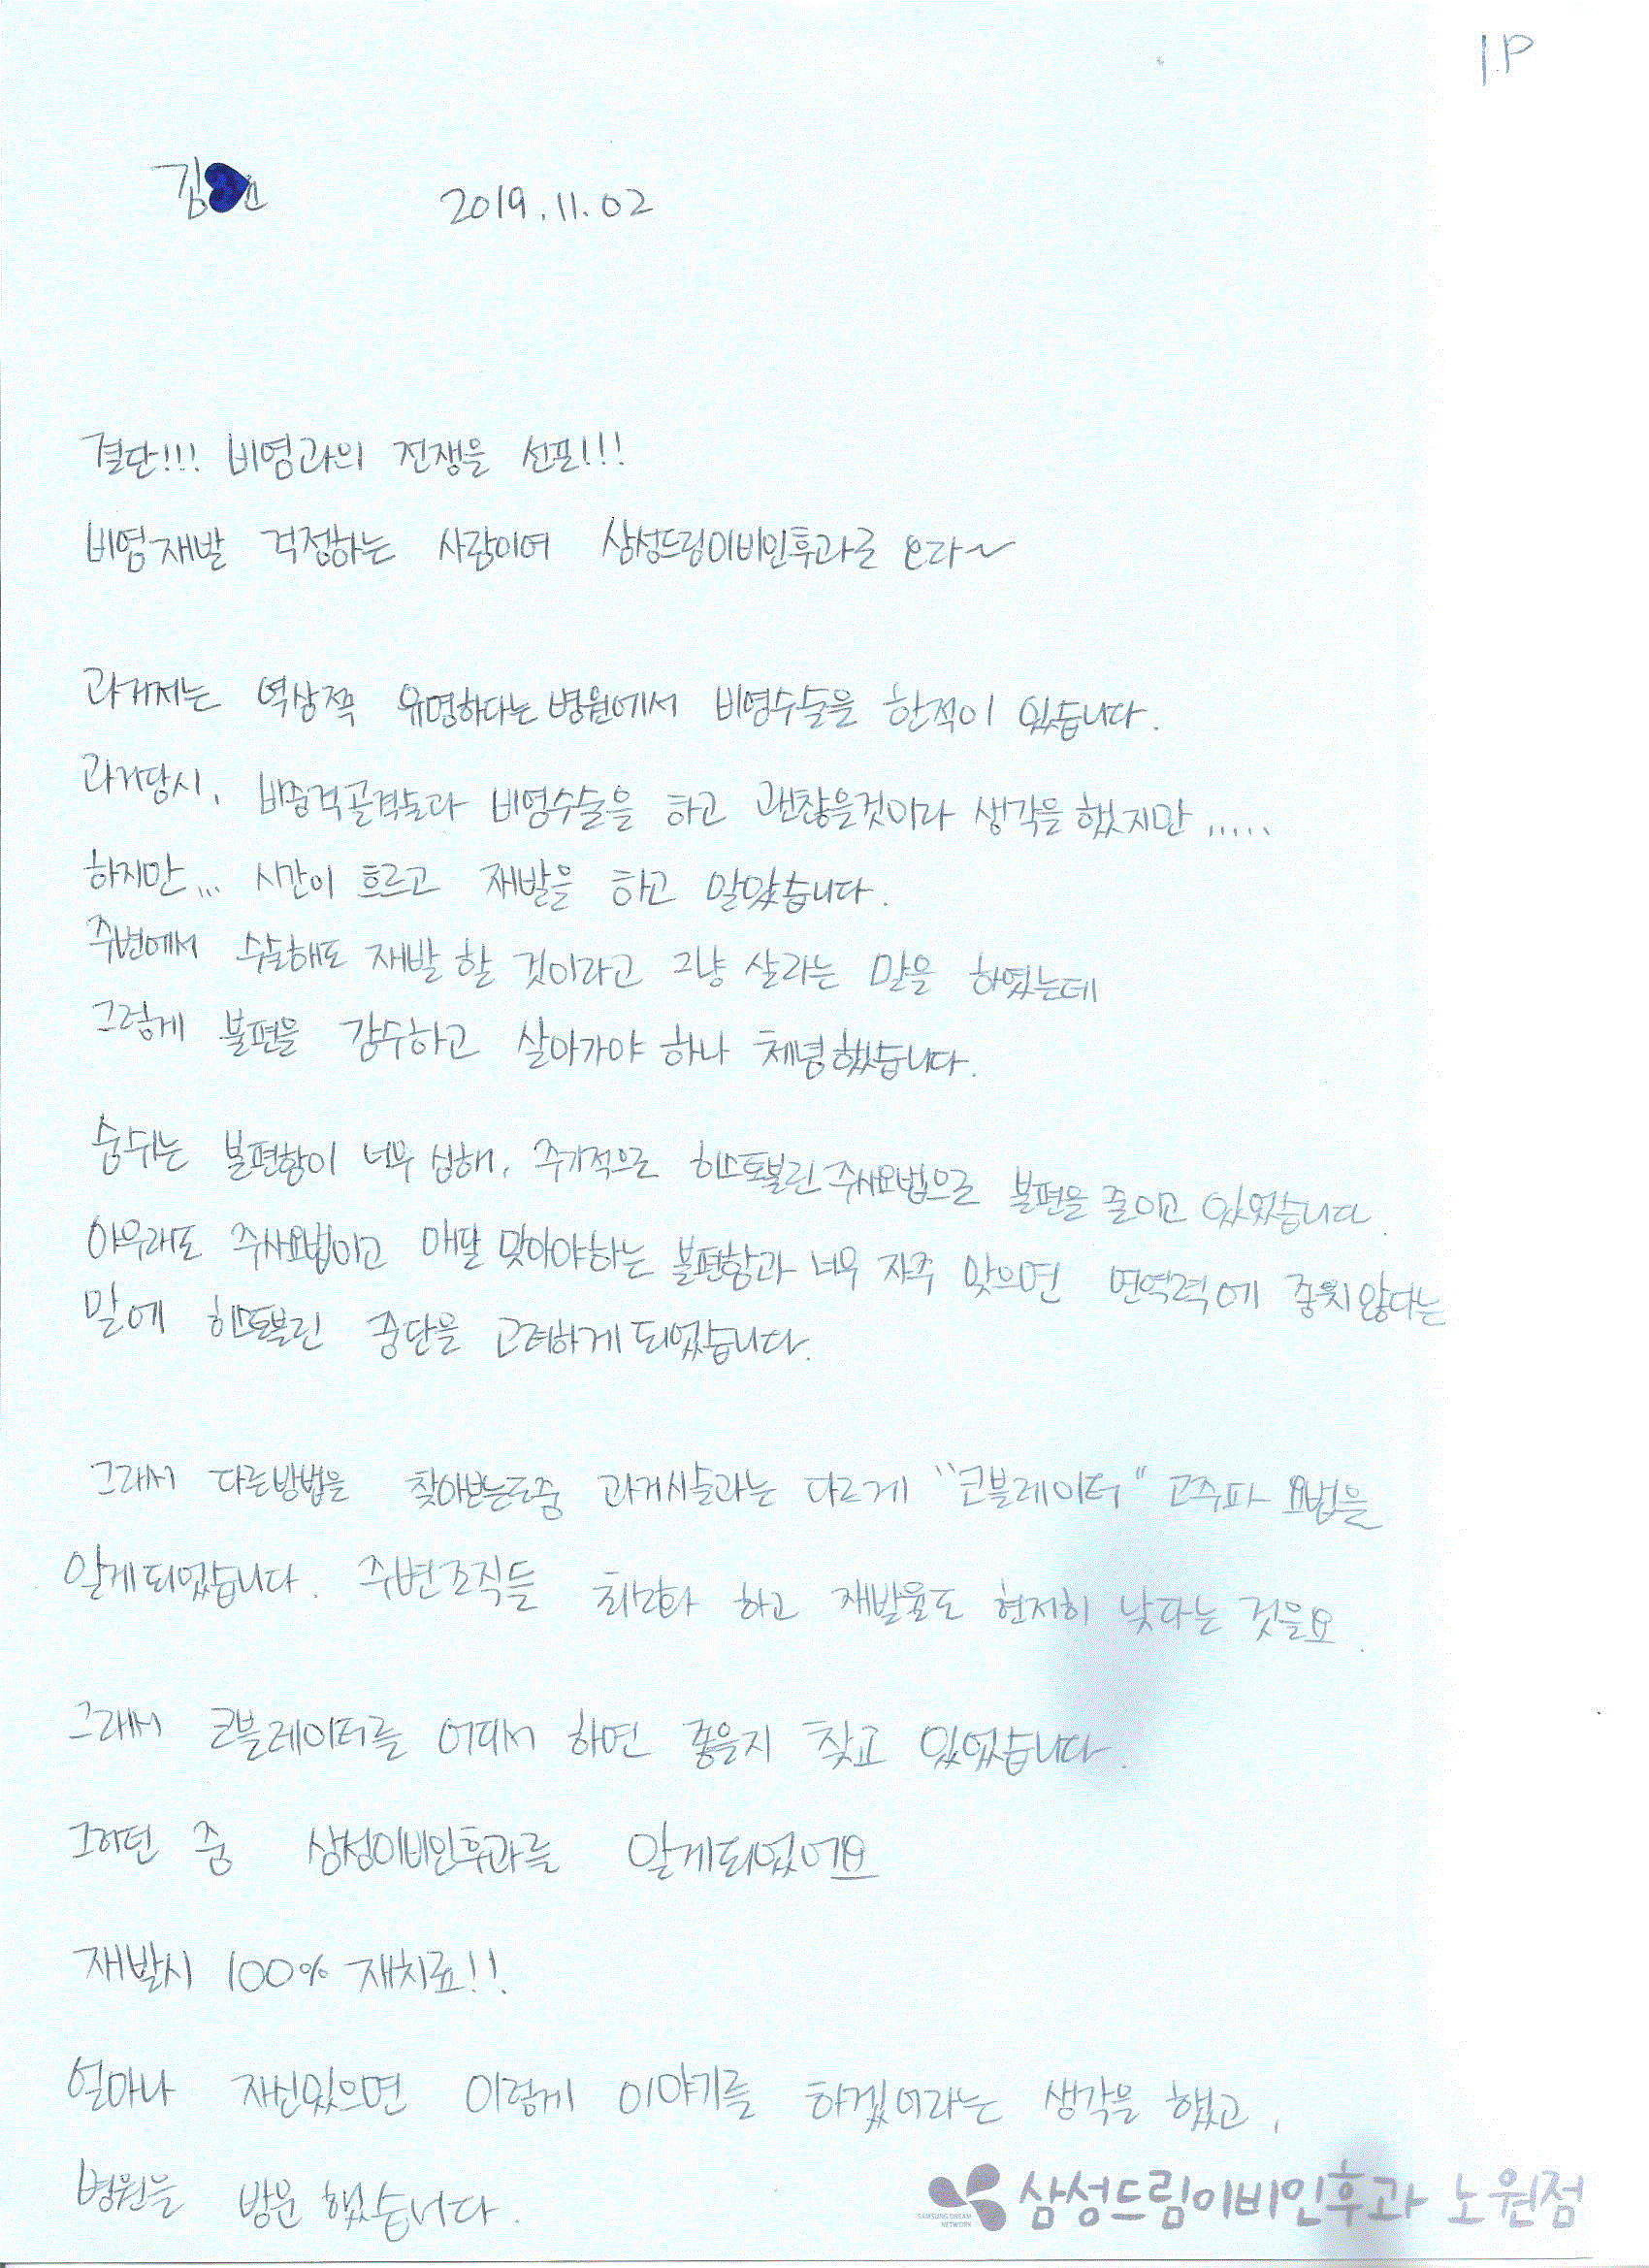 1.P
김 2019.11.02
결단!!! 비염과의 전쟁을 선포!!!
비염재발 걱정하는 사람이여 삼성드림이비인후과로 오다~
과거저는 역삼쪽 유명하다는 병원에서 비염수술을 한적이 있습니다.
과거당시, 비중격골격술과 비염수술을 하고 괜찮을것이라 생각을 했지만.....
하지만... 시간이 흐르고 재발을 하고 말았습니다.
주변에서 수술해도 재발 할 것이라고 그냥 살라는 말을 하였는데
그렇게 불편을 감수하고 살아가야 하나 체념했습니다.
숨쉬는 불편함이 너무 심해, 주기적으로 히스토불린주사요법으로 불편을 줄이고 있었습니다.
아무래도 주사요법이고 매달 맞아야하는 불편함과 너무 자주 맞으면 면역력에 좋치않다는
말에 히스토불린 중단을 고려하게 되었습니다.
그래서 다른방법을 찾아보는도중 과거시술과는 다르게 "코블레이터" 고주파 요법을
알게되었습니다. 주변조직들 최소화 하고 재발율도 현저히 낮다는 것을요.
그래서 코블레이터를 어디서 하면 좋을지 찾고 있었습니다.
그러던 중 삼성이비인후과를 알게되었어요
재발시 100% 재치료!!
얼마나 자신있으면 이렇게 이야기를 하겠어라는 생각을 했고,
병원을 방문 했습니다.
SAMSUNG DREAM NETWORK 삼성드림이비인후과 노원점